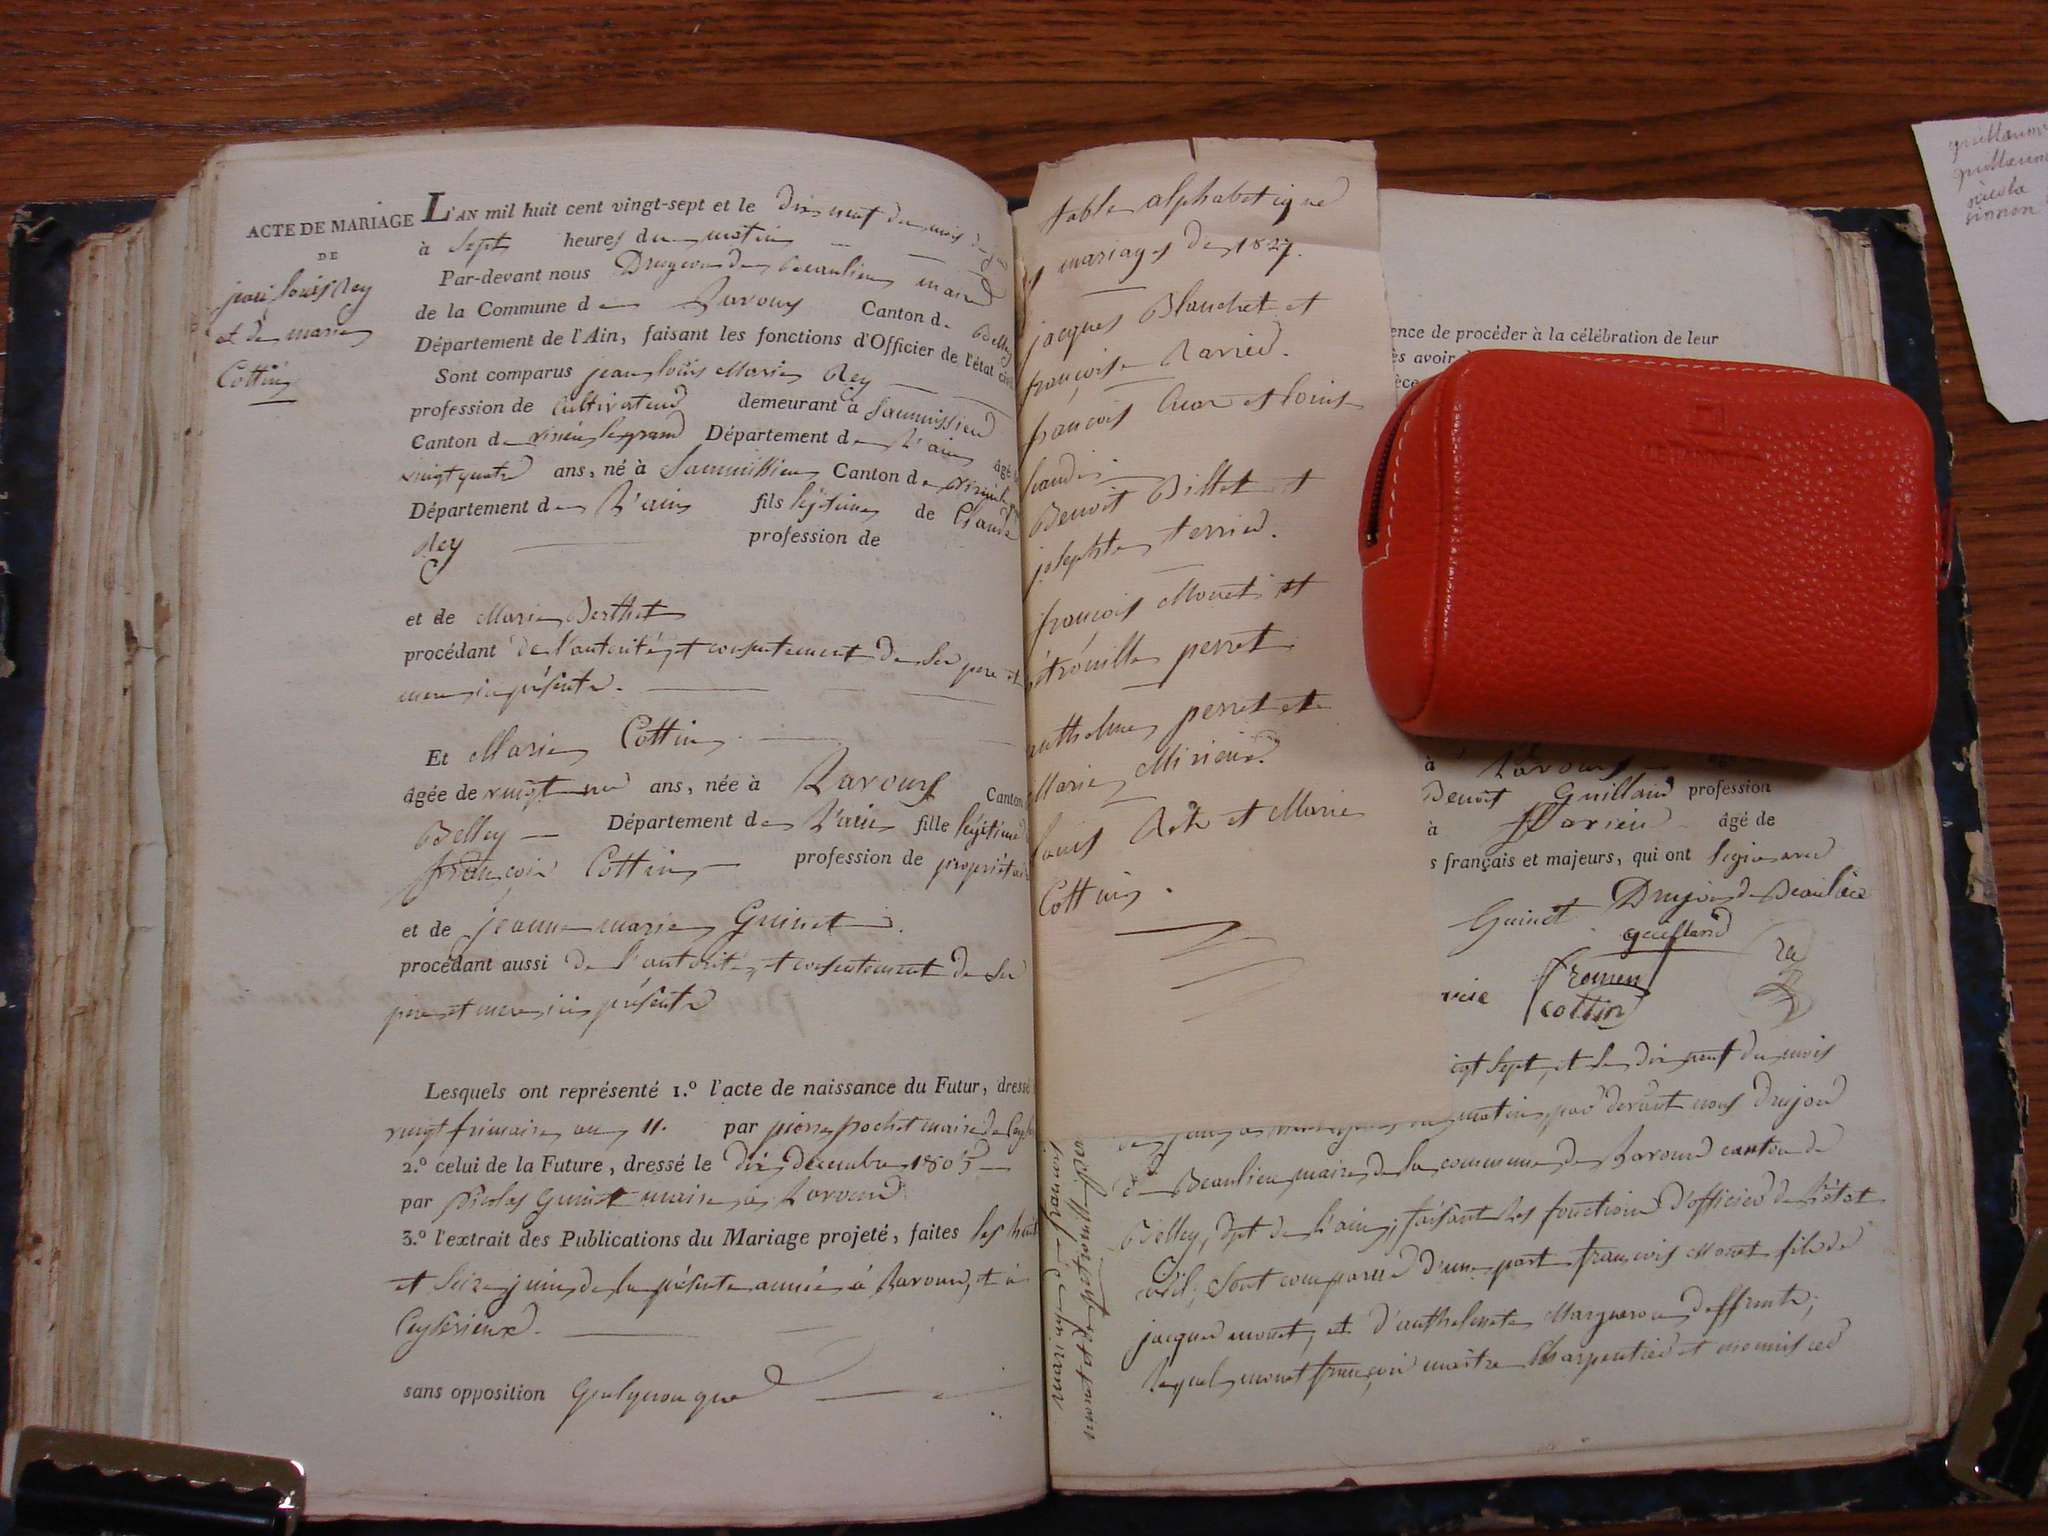 ACTE DE MARIAGE
DE
jean louis Rey
et de marie
Cottin
L'AN mil huit cent vingt-sept et le dix neuf du mois de
à sept heures du matin
Par-devant nous Drujon de Beaulieu maire
de la Commune de Lavours Canton de Belley
Département de l'Ain, faisant les fonctions d'Officier de l'état civil
Sont comparus jean louis Marie Rey
profession de cultivateur demeurant à
Canton de virieu le grand Département de L'ain âgé
vingt quatre ans, né à Canton de
Département de L'ain fils légitime de Claude
Rey profession de
et de Marie Berthet
procédant de l'autorité et consentement de ses père et
mere ici présents.
Et Marie Cottin
âgée de vingt un ans, née à Lavours Canton
Belley Département de L'ain fille légitime
françois Cottin profession de propriétaire
et de jeanne marie Guinet
procédant aussi de l'autorité et consentement de ses
pere et mere ici présents
Lesquels ont représenté 1.º l'acte de naissance du Futur, dressé
vingt frimaire an 11. par pierre pochet maire de
2.º celui de la Future, dressé le dix decembre 1805
par Nicolas Guinet maire à Lavours
3.º l'extrait des Publications du Mariage projeté, faites les huit
et seize juin de la présente année à Lavours, et à
Ceyserieux.
sans opposition quelquonque
table alphabetique
mariages de 1827.
jacques Blanchet et
françoise Ravier.
françois et louise
Benoit Billet et
josephte terrier.
françois Monet et
pétronille perret
anthelme perret et
Marie
louis Rey et Marie
Cottin.
ence de procéder à la célébration de leur
ès avoir
à Lavours
Benoit Guilland profession
à âgé de
s français et majeurs, qui ont signé avec
Guinet Drujon de Beaulieu
guilland
fromen
cottin
ingt sept, et le dix neuf du mois
matin, par devant nous Drujon
de Beaulieu maire de la commune de Lavours canton de
Belley, dpt de L'ain, faisant les fonctions d'officier de l'état
civil, sont comparus d'une part françois Monet fils de
jacques monet, et d'anthelmete deffunte;
lequel monet françois maître charpentier et
mariage de françois
monet et de pétronille perret
guillaume
guillaume
nicola
simon